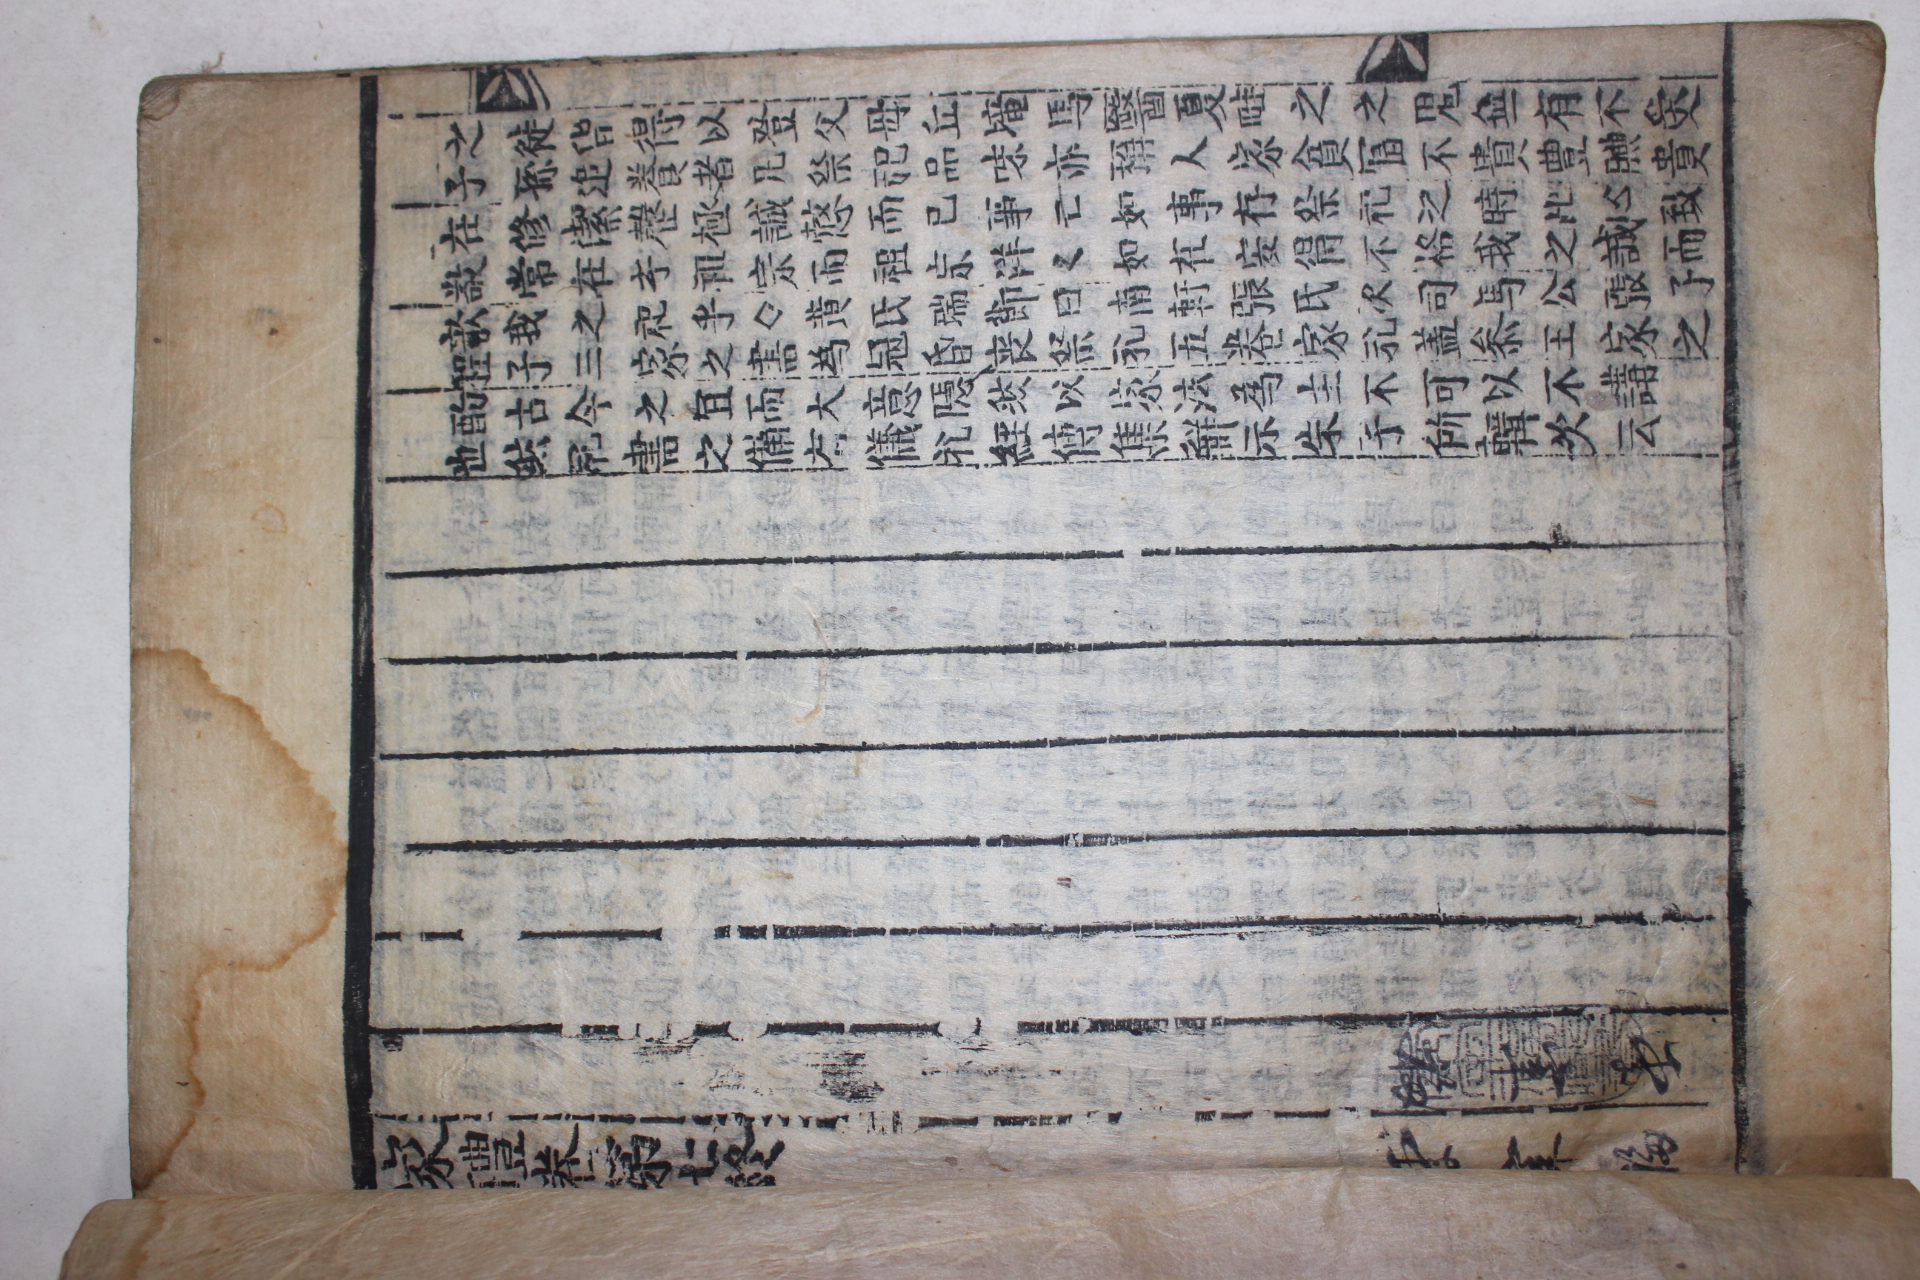 之徒皆得以登父母丘壠馬醫夏畦之之鬼無有不受
子孫追養者凡祭祀品味亦稱人家貧富不貴豐腆貴
在修潔整極誠慤而已事亡如事存祭祀之時此心致
敬常在乎祖宗而祖宗洋々如在安得不格我之誠而
歆我之祀乎◇黃氏瑞節曰南軒張氏次司馬公張子
程子三家之書為冠昏丧祭礼五卷家礼盖叅王家之
酌古今之宜而大意隠然以家法為主不可以不講
也然見書之俻有儀礼経傳集觧示朱子所輯次云
家禮卷第七終